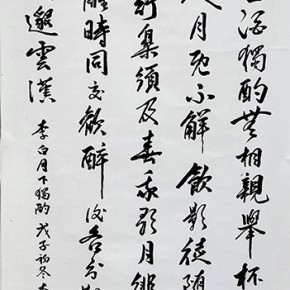 酒獨酌無相親舉杯
人月既不解飲影徒随
行樂須及春我歌月徘
醒時同交歡醉後各分散
邈雲漢
李白月下獨酌 戊子初冬